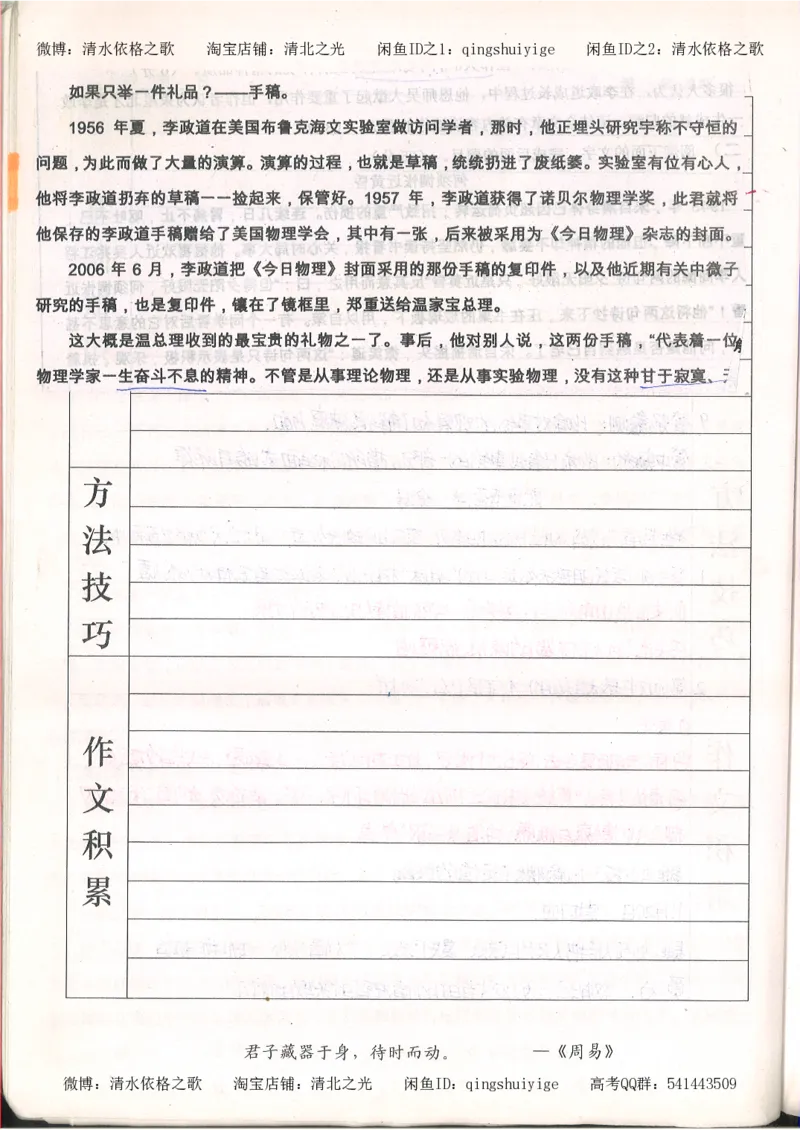 微博：清水依格之歌 淘宝店铺：清北之光 闲鱼ID之1：qingshuiyige 闲鱼ID之2：清水依格之歌
如果只举一件礼品？——手稿。
1956 年夏，李政道在美国布鲁克海文实验室做访问学者，那时，他正埋头研究宇称不守恒的
问题，为此而做了大量的演算。演算的过程，也就是草稿，统统扔进了废纸篓。实验室有位有心人，
他将李政道扔弃的草稿一一捡起来，保管好。1957 年，李政道获得了诺贝尔物理学奖，此君就将
他保存的李政道手稿赠给了美国物理学会，其中有一张，后来被采用为《今日物理》杂志的封面。
2006 年 6 月，李政道把《今日物理》封面采用的那份手稿的复印件，以及他近期有关中微子
研究的手稿，也是复印件，镶在了镜框里，郑重送给温家宝总理。
这大概是温总理收到的最宝贵的礼物之一了。事后，他对别人说，这两份手稿，“代表着一位
物理学家一生奋斗不息的精神。不管是从事理论物理，还是从事实验物理，没有这种甘于寂寞、
方法技巧
作文积累
君子藏器于身，待时而动。 —《周易》
微博：清水依格之歌 淘宝店铺：清北之光 闲鱼ID：qingshuiyige 高考QQ群：541443509